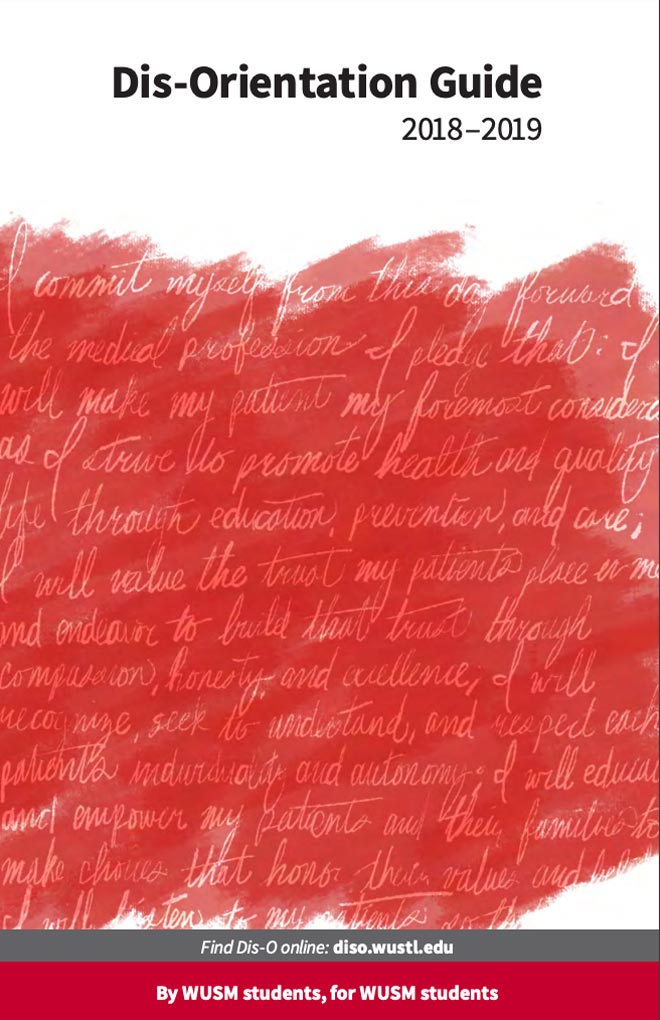 Dis-Orientation Guide
2018–2019
I commit myself from this day forward
the medical profession I pledge that: I
will make my patient my foremost considera
as I strive to promote health and quality
life through education, prevention, and care;
I will value the trust my patients place in me
and endeavor to build that trust through
compassion, honesty, and excellence, I will
recognize, seek to understand, and respect each
patient's individuality and autonomy; I will educat
and empower my patients and their families to
make choices that honor their values and bel
I will listen to my patients so th
Find Dis-O online: diso.wustl.edu
By WUSM students, for WUSM students